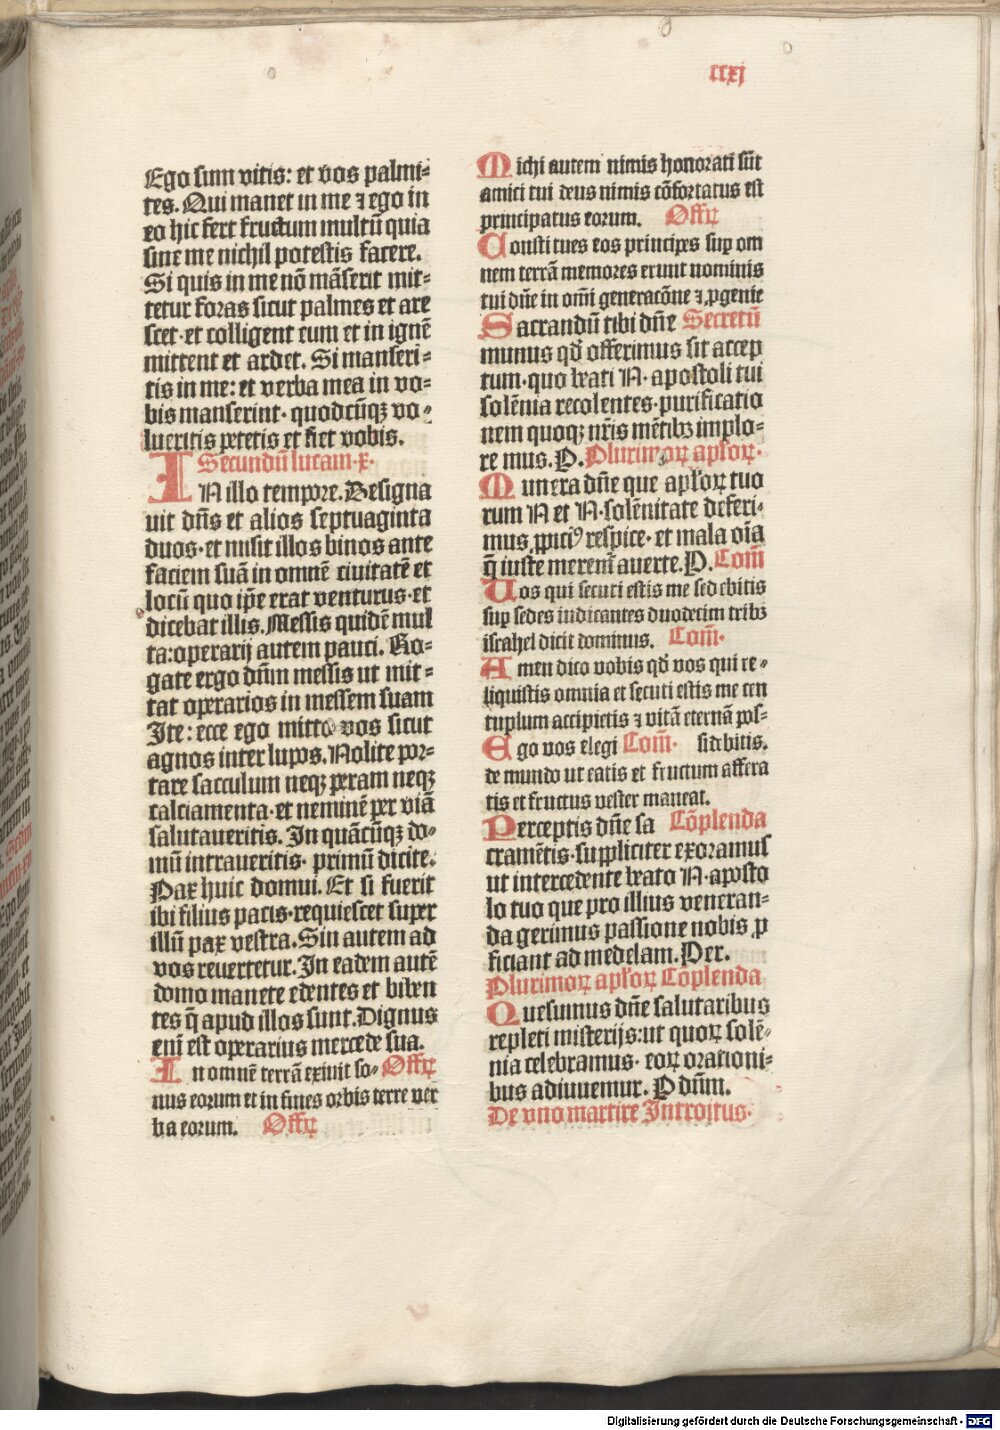 ccxj
Ego sum vitis: et vos palmi-
tes. Qui manet in me ⁊ ego in
eo hic fert fructum multū quia
sine me nichil potestis facere.
Si quis in me nō māserit mit-
tetur foras sicut palmes et are
scet·et colligent eum et in ignē
mittent et ardet. Si manseri-
tis in me: et verba mea in vo-
bis manserint· quodcūqꝫ vo-
lueritis petetis et fiet vobis.
Secundū lucam·x·
IN illo tempore. Designa
uit dn̄s et alios septuaginta
duos·et misit illos binos ante
faciem suā in omnē ciuitatē et
locū quo ip̄e erat venturus·et
dicebat illis. Messis quidē mul
ta:operarij autem pauci. Ro-
gate ergo dn̄m messis ut mit-
tat operarios in messem suam
Ite: ecce ego mitto vos sicut
agnos inter lupos. Nolite por-
tare sacculum neqꝫ peram neqꝫ
calciamenta·et neminē per viā
salutaueritis. In quācūqꝫ do-
mū intraueritis· primū dicite:
Pax huic domui. Et si fuerit
ibi filius pacis·requiescet super
illū pax vestra. Sin autem ad
vos reuertetur. In eadem autē
domo manete edentes et biben
tes q̄ apud illos sunt. Dignus
eni̅ est operarius mercede sua.
In omnē terrā exiuit so- Offꝝ
nus eorum et in fines orbis terre ver
ba eorum. Offꝝ
Michi autem nimis honorati sūt
amici tui deus nimis cōfortatus est
principatus eorum. Offꝝ
Constitues eos principes sup om
nem terrā memores erunt nominis
tui dn̄e in om̄i generacōne ⁊ ꝓgenie
Sacrandū tibi dn̄e Secretū
munus qd̄ offerimus sit accep
tum·quo beati N· apostoli tui
solēnia recolentes·purificatio
nem quoqꝫ nr̄is mētibꝫ implo-
re mus. P. Plurimoꝝ apl̄oꝝ·
Munera dn̄e que apl̄oꝝ tuo
rum N et N·solēnitate deferi-
mus ꝓpiciꝰ respice· et mala oīa
q̄ iuste meremᷣ auerte. P. Com̄
Uos qui secuti estis me sedebitis
sup sedes iudicantes duodecim tribꝫ
israhel dicit dominus. Com̄·
Amen dico vobis qd̄ vos qui re-
liquistis omnia et secuti estis me cen
tuplum accipietis ⁊ vitā eternā pos-
Ego vos elegi Com̄· sidebitis.
de mundo ut eatis et fructum affera
tis et fructus vester maneat.
Perceptis dn̄e sa Cōplenda
cramētis·suppliciter exoramus
ut intercedente beato N·aposto
lo tuo que pro illius veneran-
da gerimus passione nobis ꝓ
ficiant ad medelam. Per.
Plurimoꝝ apl̄oꝝ Cōplenda
Quesumus dn̄e salutaribus
repleti misterijs:ut quoꝝ solē-
nia celebramus· eoꝝ orationi-
bus adiuuemur. P dn̄m.
De vno martire Introitus·
Digitalisierung gefördert durch die Deutsche Forschungsgemeinschaft - DFG